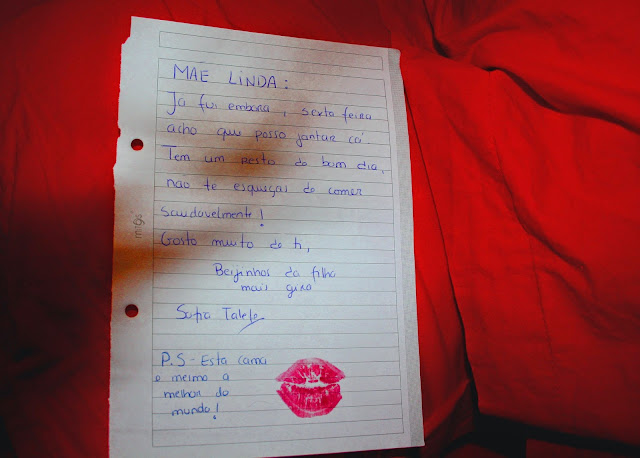 MAE LINDA:
Já fui embora, sexta feira
acho que posso jantar cá.
Tem um resto de bom dia,
não te esqueças de comer
saudavelmente!
Gosto muito de ti,
Beijinhos da filha
mais gira
Sofia
P.S - Esta cama
é mesmo a
melhor do
mundo!
mgs